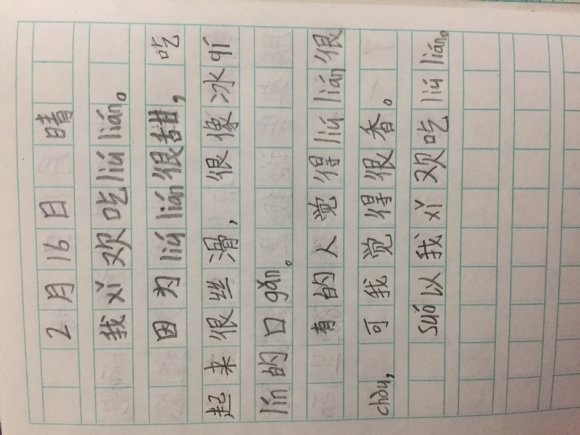 2月16日 晴
我xǐ欢吃liú lián。
因为liú lián很甜，吃
起来很丝滑，很像冰qí
lín的口gǎn。
有的人觉得liú lián很
chòu，可我觉得很香。
suó以我xǐ欢吃liú lián。